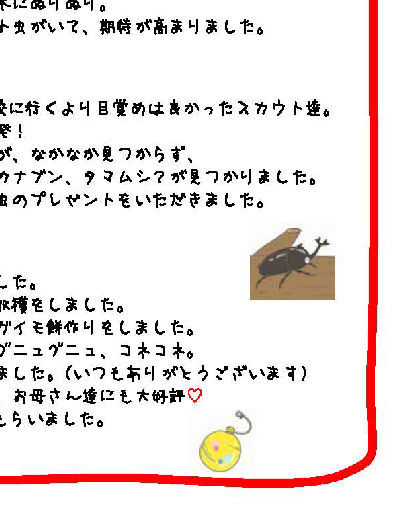 木にぬりぬり。
ナ虫がいて、期待が高まりました。
校に行くより目覚めは良かったスカウト達。
発!
が、なかなか見つからず、
カナブン、タマムシ?が見つかりました。
虫のプレゼントをいただきました。
した。
収穫をしました。
ガイモ餅作りをしました。
グニュグニュ、コネコネ。
ました。(いつもありがとうございます)
、お母さん達にも大好評♡
もらいました。